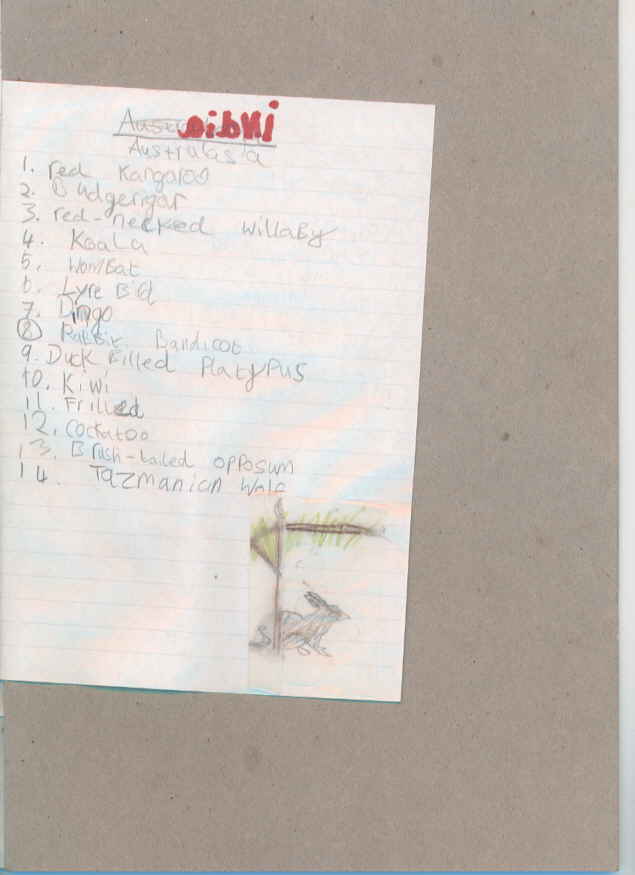 Austra
india
Australasia
1. red Kangaroo
2. Budgerigar
3. red-necked WillaBy
4. KoaLa
5. WomBat
6. Lyre Bird
7. Dingo
8 RaBBit Bandicot
9. Duck Billed PlatyPuS
10. Kiwi
11. Frilled
12. Cockatoo
13. Brush-tailed opposum
14. Tazmanian Wolf